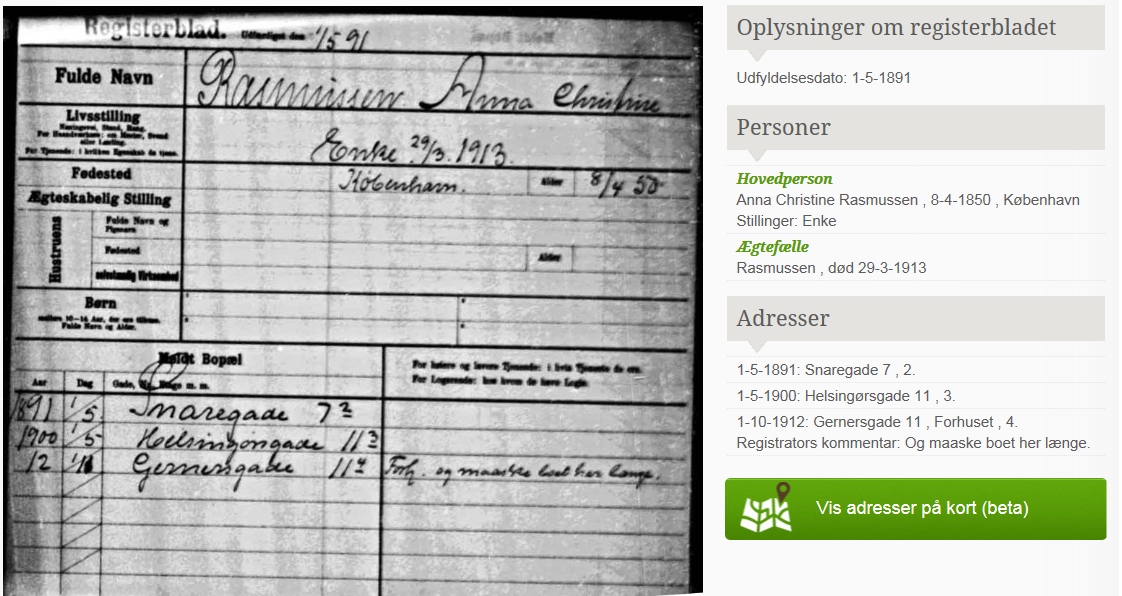 Registerblad. Udfærdiget den 1/5 91
Fulde Navn
Rasmussen Anna Christine
Livsstilling
Næringsvej, Stand, Rang.
For Haandværkere: om Mester, Svend
eller Lærling.
For Tjenende: i hvilken Egenskab de tjene.
Enke 29/3. 1913.
Fødested
København.
Alder
8/4 50
Ægteskabelig Stilling
Hustruens
Fulde Navn og
Pigenavn
Fødested
Alder
selvstændig Virksomhed
Børn
mellem 10-14 Aar, der ere tilhuse.
Fulde Navn og Alder.
Meldt Bopæl
For højere og lavere Tjenende: i hvis Tjeneste de ere.
For Logerende: hos hvem de have Logis.
Aar Dag Gade, m. m.
1891 1/5 Snaregade 7 2
1900 1/5 Helsingörsgade 11 3
12 Gernersgade 11 4 Forh. og maaske boet her længe.
Oplysninger om registerbladet
Udfyldelsesdato: 1-5-1891
Personer
Hovedperson
Anna Christine Rasmussen , 8-4-1850 , København
Stillinger: Enke
Ægtefælle
Rasmussen , død 29-3-1913
Adresser
1-5-1891: Snaregade 7 , 2.
1-5-1900: Helsingørsgade 11 , 3.
1-10-1912: Gernersgade 11 , Forhuset , 4.
Registrators kommentar: Og maaske boet her længe.
Vis adresser på kort (beta)